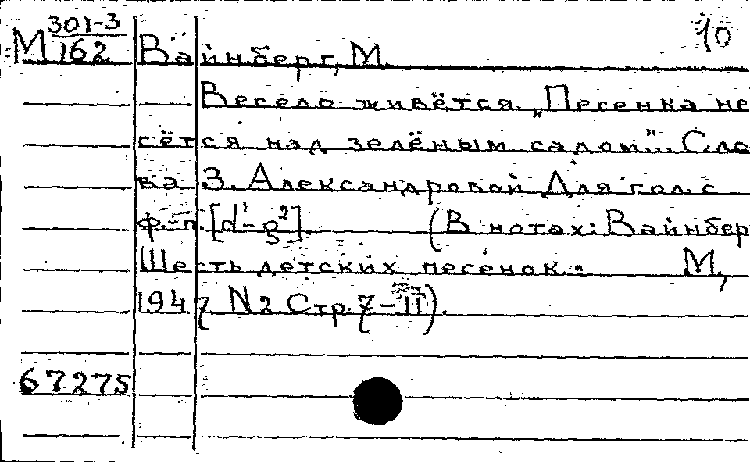 М 301-3/162 Вайнберг, М. 10
Весело живётся. „Песенка не
сётся над зелёным садом". Сло
ва З. Александровой Для гол. с
ф.-п. [d¹-g²]. (В нотах: Вайнбер
Шесть детских песенок. М,
1947 N2 Стр. 7-11).
67275